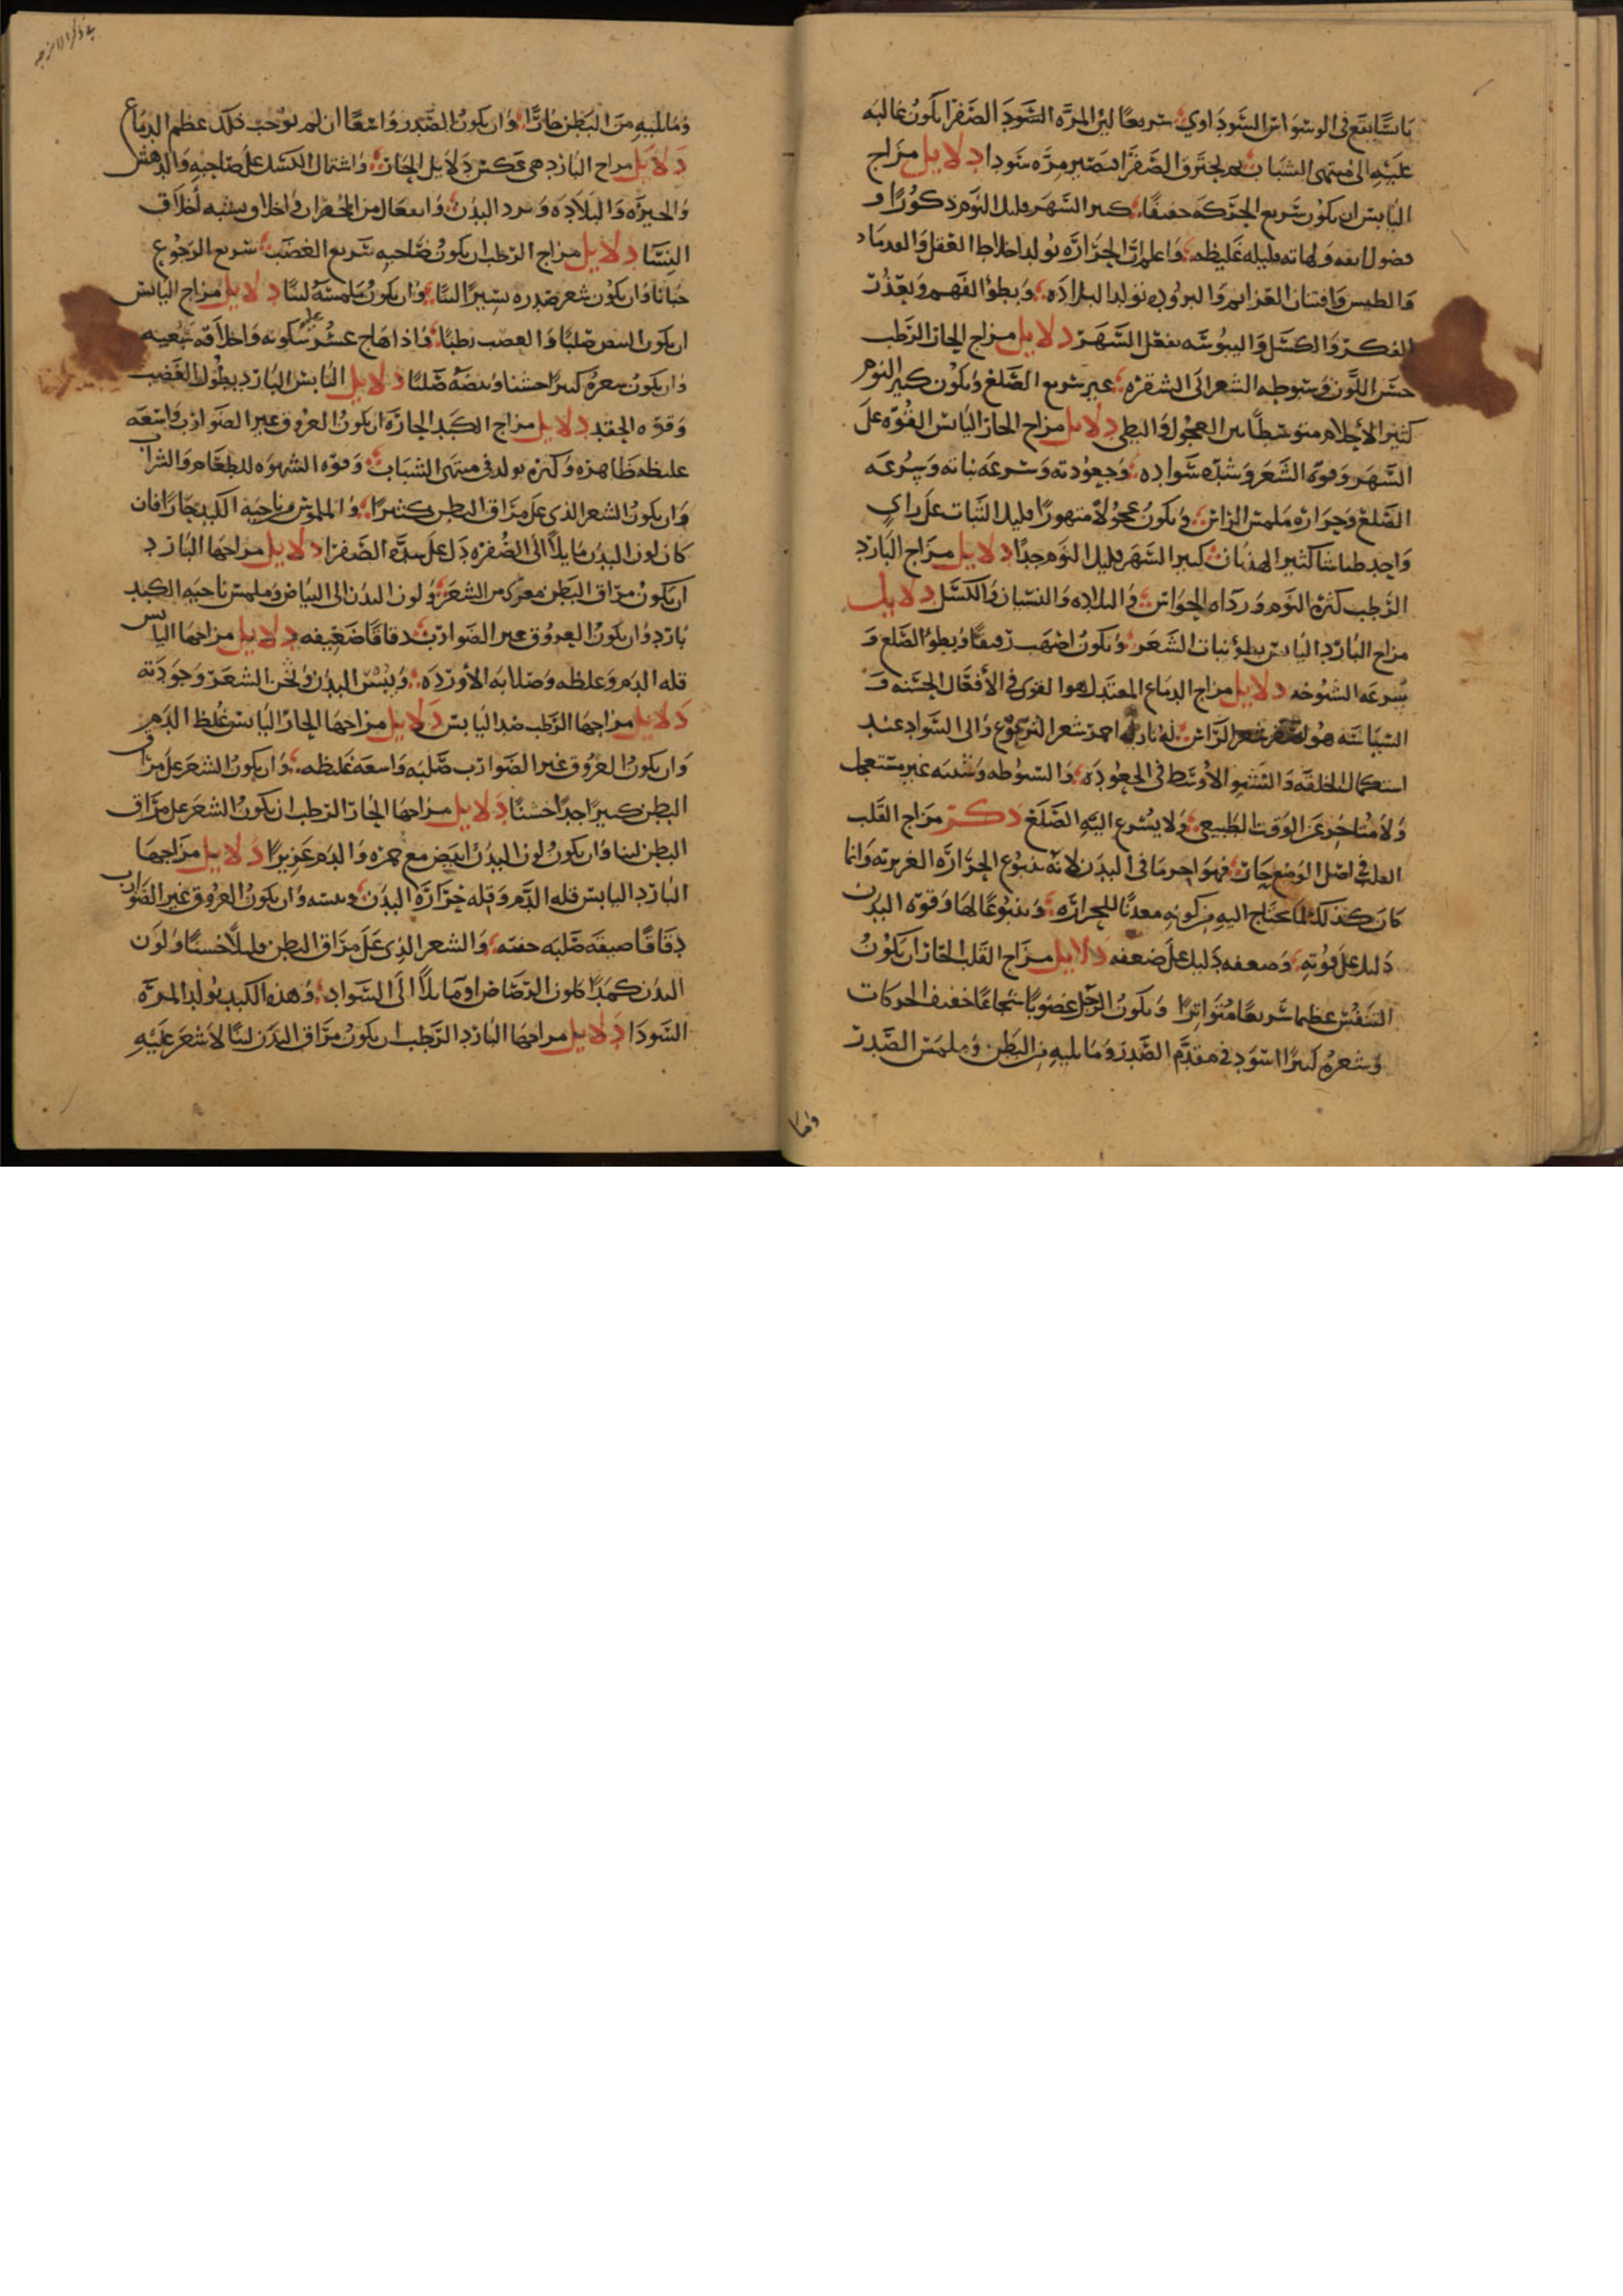 باشيا يقع في الوسواس السوداوي سريعا لان المره السودا الصفرا يكون غالبه
عليه الى منتهى الشباب ثم تحترق الصفرا فتصير مره سودا دلايل مزاج
اليابس ان يكون سريع الحركه خفيفا كثير السهر قليل النوم ذكورا و
فضول انفه ولهاته قليله غليظه واعلم ان الحراره تولد اختلاط العقل
والطيش والبروده تولد البلاده وبطو الفهم وتعذر
الفكر والكسل واليبوسه تفعل السهر دلايل مزاج الحار الرطب
حسن اللون وسبوطه الشعر الى الشقره غير سريع الصلع ويكون كثير النوم
كثير الاحلام متوسطا بين العجول والبطي دلايل مزاج الحار اليابس القوه على
السهر وقوه الشعر وشده سواده وجعودته وسرعه نباته وسرعه
الصلع وحراره ملمس الراس ويكون عجولا متهورا قليل الثبات على راي
واحد طياشا كثير الهذيان كثير السهر قليل النوم جدا دلايل مزاج البارد
الرطب كثره النوم ورداه الحواس والبلاده والنسيان والكسل دلايل
مزاج البارد اليابس بطو نبات الشعر ويكون اصهب رقيقا وبطو الصلع و
سرعه الشيوخه دلايل مزاج الدماغ المعتدل هو القوى في الافعال الحسنه و
السياسه هو شعر الراس له نار احمر شعر الترعرع والى السواد عند
استكمال الخلقه والنشو الاوسط في الجعوده والسبوطه وشيبه غير مستعجل
ولا متاخر عن الوقت الطبيعي ولا يسرع اليه الصلع ذكر مزاج القلب
القلب في اصل الوضع حار فهو احر ما في البدن لانه ينبوع الحراره الغريزيه وانما
كان كذلك لما يحتاج اليه من كونه معدنا للحراره وينبوعا لها وقوه البدن
دليل على قوته وضعفه دليل على ضعفه دلايل مزاج القلب الحار ان يكون
النفس عظيما سريعا متواترا ويكون الرجل غضوبا شجاعا خفيف الحركات
وشعره كثيرا اسود في مقدم الصدر وما يليه من البطن وملمس الصدر
واما
في ذكر الامزجه
وما يليه من البطن حارا وان يكون الصدر واسعا ان لم يوجب ذلك عظم الدماغ
دلايل مزاج البارد هي عكس دلايل الحار واشتمال الكسل على صاحبه والدهش
والحيره والبلاده وبرد البدن وانفعال من المحقرات واخلاق يشبه اخلاق
النسا دلايل مزاج الرطب ان يكون صاحبه سريع الغضب سريع الرجوع
جبانا وان يكون شعر صدره يسيرا لينا وان يكون ملمسه لينا دلايل مزاج اليابس
ان يكون النبض صلبا والغضب بطيا فاذا هاج عسر سكونه واخلاقه سبعيه
وان يكون شعره كثيرا خشنا ونبضه صلبا دلايل اليابس البارد بطول الغضب
وقوه الحقد دلايل مزاج الكبد الحاره ان يكون العروق غير الضوارب واسعه
غليظه ظاهره وكثره تولد في منتهى الشباب وقوه الشهوه للطعام والشراب
وان يكون الشعر الذي على مراق البطن كثيرا والملموس من ناحيه الكبد حارا فان
كان لون البدن مايلا الى الصفره دل على شده الصفرا دلايل مزاجها البارد
ان يكون مراق البطن معرى من الشعر ولون البدن الى البياض وملمس ناحيه الكبد
بارد وان يكون العروق غير الضوارب دقاقا ضعيفه دلايل مزاجها اليابس
قله الدم وغلظه وصلابه الاورده ويبس البدن وثخن الشعر وجودته
دلايل مزاجها الرطب ضد اليابس دلايل مزاجها الحار اليابس غلظ الدم
وان يكون العروق غير الضوارب صلبه واسعه غليظه وان يكون الشعر على مراق
البطن كثيرا جدا خشنا دلايل مزاجها الحار الرطب ان يكون الشعر على مراق
البطن لينا وان يكون لون البدن ابيض مع حمره والدم غزيرا دلايل مزاجها
البارد اليابس قله الدم وقله حراره البدن ويبسه وان يكون العروق غير الضوارب
دقاقا ضيقه صلبه خفيه والشعر الذي على مراق البطن قليلا خشنا ولون
البدن كمدا كلون الرصاص او مايلا الى السواد وهذه الكبد تولد المره
السودا دلايل مزاجها البارد الرطب ان يكون مراق البدن لينا لا شعر عليه